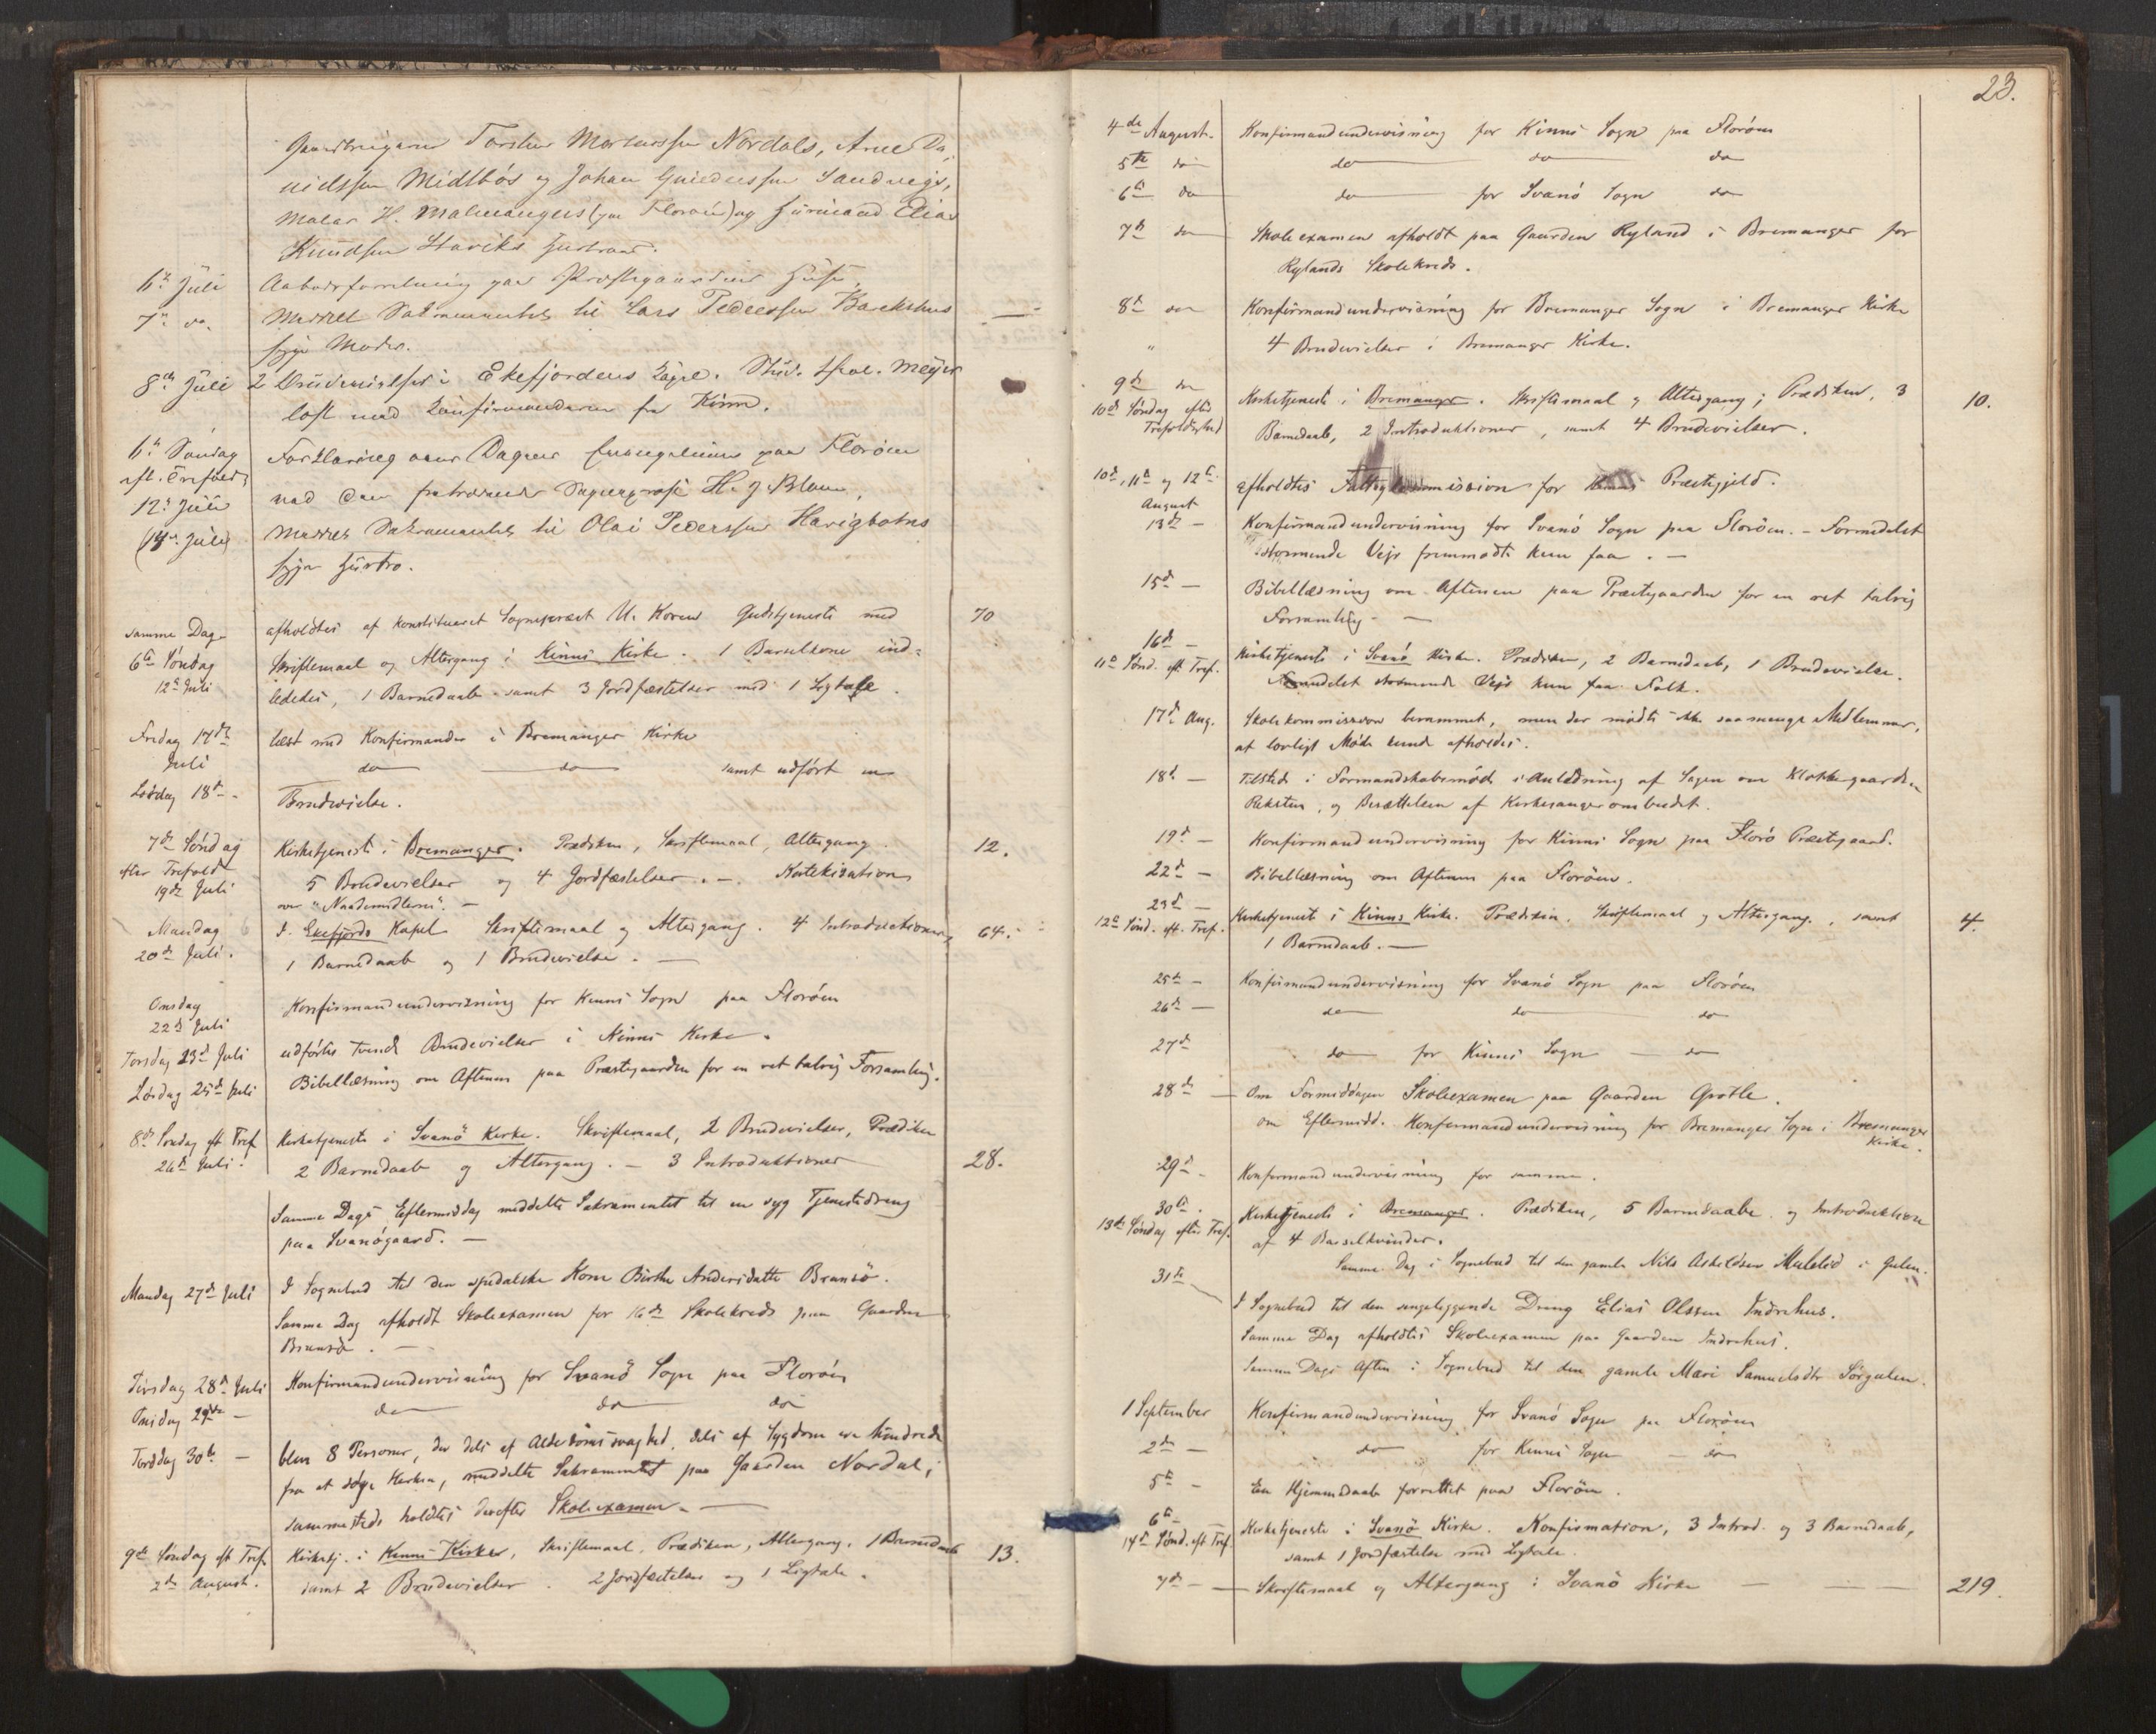 Torsteen Mortensen Nordals, Arne Da-
nielssen Midtbös og Johan Sandvigs,
Maler H. Malmangers (paa Floröen) og Huusmand Elias
Knudsen Staviks Hustruer.
6te Juli Aabodsforretning paa Præstegaardens Huse.
7de do. Meddelt Sakramentet til Lars Pederssen
syge Moder.
8de Juli 2 Brudevielser i Ekefjordens Kapel. Stud. theol. Meyer
læst med Konfirmanderne fra Kinn.
6te Søndag Forklaring over Dagens Evangelium paa Floröen
eft. Trefold. ved den fratrædende Sognepræst H. J. Blom.
12te Juli
Meddelt Sakramentet til Olai Pederssen Havigbotns
syge Hustro.
samme Dag afholdtes af konstitueret Sognepræst U. Koren Gudstjeneste med 70
6te Söndag Skriftemaal og Altergang i Kinns Kirke. 1 Barselkone ind-
12te Juli lededes, 1 Barnedaab samt 3 Jordfæstelser med 1 Ligtale.
Fredag 17de læst med Konfirmander i Bremanger Kirke
Juli do do samt udført en
Løvdag 18de - Brudevielse.
7de Söndag Kirketjeneste i Bremanger. Prædiken, Skriftemaal, Altergang. 12.
efter Trefold 5 Brudevielser og 4 Jordfæstelser. - Katekisation
19de Juli over "Naademidlerne". -
Mandag I Ekefjords Kapel Skriftemaal og Altergang. 4 Introductioner, 64.
20de Juli. 1 Barnedaab og 1 Brudevielse. -
Onsdag Konfirmandundervisning for Kinns Sogn paa Floröen
22de Juli
Torsdag 23de Juli udførtes tvende Brudevielser i Kinns Kirke.
Lördag 25de Juli Bibellæsning om Aftenen paa Præstegaarden for en ret talrig Forsamling.
8de Søndag eft Tref Kirketjeneste i Svanö Kirke. Skriftemaal, 2 Brudevielser, Prædiken
26de Juli. 2 Barnedaab og Altergang. - 3 Introduktioner 28.
Samme Dags Eftermiddag meddelte Sakramentet til en syg Tjenestedreng
paa Svanögaard. -
Mandag 27de Juli I Sognebud til den spedalske Kone Birthe Andersdatter Brandsö.
Samme Dag afholdt Skoleexamen for 16de Skolekreds paa Gaarden
Brandsö. -
Tirsdag 28de Juli Konfirmandundervisning for Svanö Sogn paa Floröen
Onsdag 29de - do do do
Torsdag 30te - blev 8 Personer, der dels af Alderdomssvaghed, dels af Sygdom ere hindrede
fra at søge Kirken, meddelte Sakramentet paa Gaarden Nordal,
sammesteds holdtes derefter Skoleexamen. -
9de Søndag eft Tref. Kirketj. i Kinns Kirke, Skriftemaal, Prædiken, Altergang, 1 Barnedaab 13.
2de August. samt 2 Brudevielser. 2 Jordfæstelser og 1 Ligtale.
23.
4de August. Konfirmandundervisning for Kinns Sogn paa Floröen
5te do do do do
6te do do for Svanö Sogn do
7de do Skoleexamen afholdt paa Gaarden Ryland i Bremanger for
Rylands Skolekreds.
8de do Konfirmandundervisning for Bremanger Sogn i Bremanger Kirke
" 4 Brudevielser i Bremanger Kirke.
9de do Kirketjeneste i Bremanger. Skriftemaal og Altergang; Prædiken, 3 10.
10de Söndag efter Barnedaab, 2 Introduktioner, samt 4 Brudevielser.
Trefoldighed
10de, 11te og 12te afholdtes Fattigkommission for Kinns Præstegjeld.
August
13de - Konfirmandundervisning for Svanö Sogn paa Floröen. - Formedelst
stormende Vejr fremmødte kun faa. -
15de - Bibellæsning om Aftenen paa Præstegaarden for en ret talrig
Forsamling -
16de - Kirketjeneste i Svanö Kirke. Prædiken, 2 Barnedaab, 1 Brudevielse.
11te Sönd. eft Tref. Formedelst stormende Vejr kun faa Folk.
17de Aug. Skolekommission berammet, men der mødte ikke saa mange Medlemmer,
at lovligt Møde kunde afholdes.
18de - Tilstede i Formandskabsmöde i Anledning af Sagen om Klokkergaarden
Reksten, og Besættelsen af Kirkesangerombudet.
19de - Konfirmandundervisning for Kinns Sogn paa Florö Præstegaard.
22de - Bibellæsning om Aftenen paa Floröen.
23de - Kirketjeneste i Kinns Kirke. Prædiken. Skriftemaal og Altergang., samt 4.
12te Sönd. eft. Tref. 1 Barnedaab. -
25te - Konfirmandundervisning for Svanö Sogn paa Floröen
26de - do do do
27de do for Kinns Sogn - do
28de - Om Formiddagen Skoleexamen paa Gaarden Grotle.
om Eftermidd. Konfirmandundervisning for Bremanger Sogn i Bremanger
Kirke.
29de - Konfirmandundervisning for samme.
30te. Kirketjeneste i Bremanger. Prædiken, 5 Barnedaabe og Introduktion
13de Söndag efter Tref. af 4 Barselkvinder.
Samme Dag i Sognebud til den gamle Nils Askeldsen Mulelid i Gulen.
31te I Sognebud til den sengeliggende Dreng Elias Olssen Indrehus.
Samme Dag afholdtes Skoleexamen paa Gaarden Indrehus.
Samme Dags Aften i Sognebud til den gamle Mari Samuelsdtr Sörgulen.
1 September Konfirmandundervisning for Svanö Sogn paa Floröen
2de - do for Kinns Sogn - do
5te - En Hjemmedaab forrettet paa Floröen.
6te - Kirketjeneste i Svanö Kirke. Konfirmation, 3 Introd. og 3 Barnedaab,
14de Sönd. eft Tref. samt 1 Jordfæstelse med Ligtale.
7de - Skriftemaal og Altergang i Svanö Kirke - - - 219.